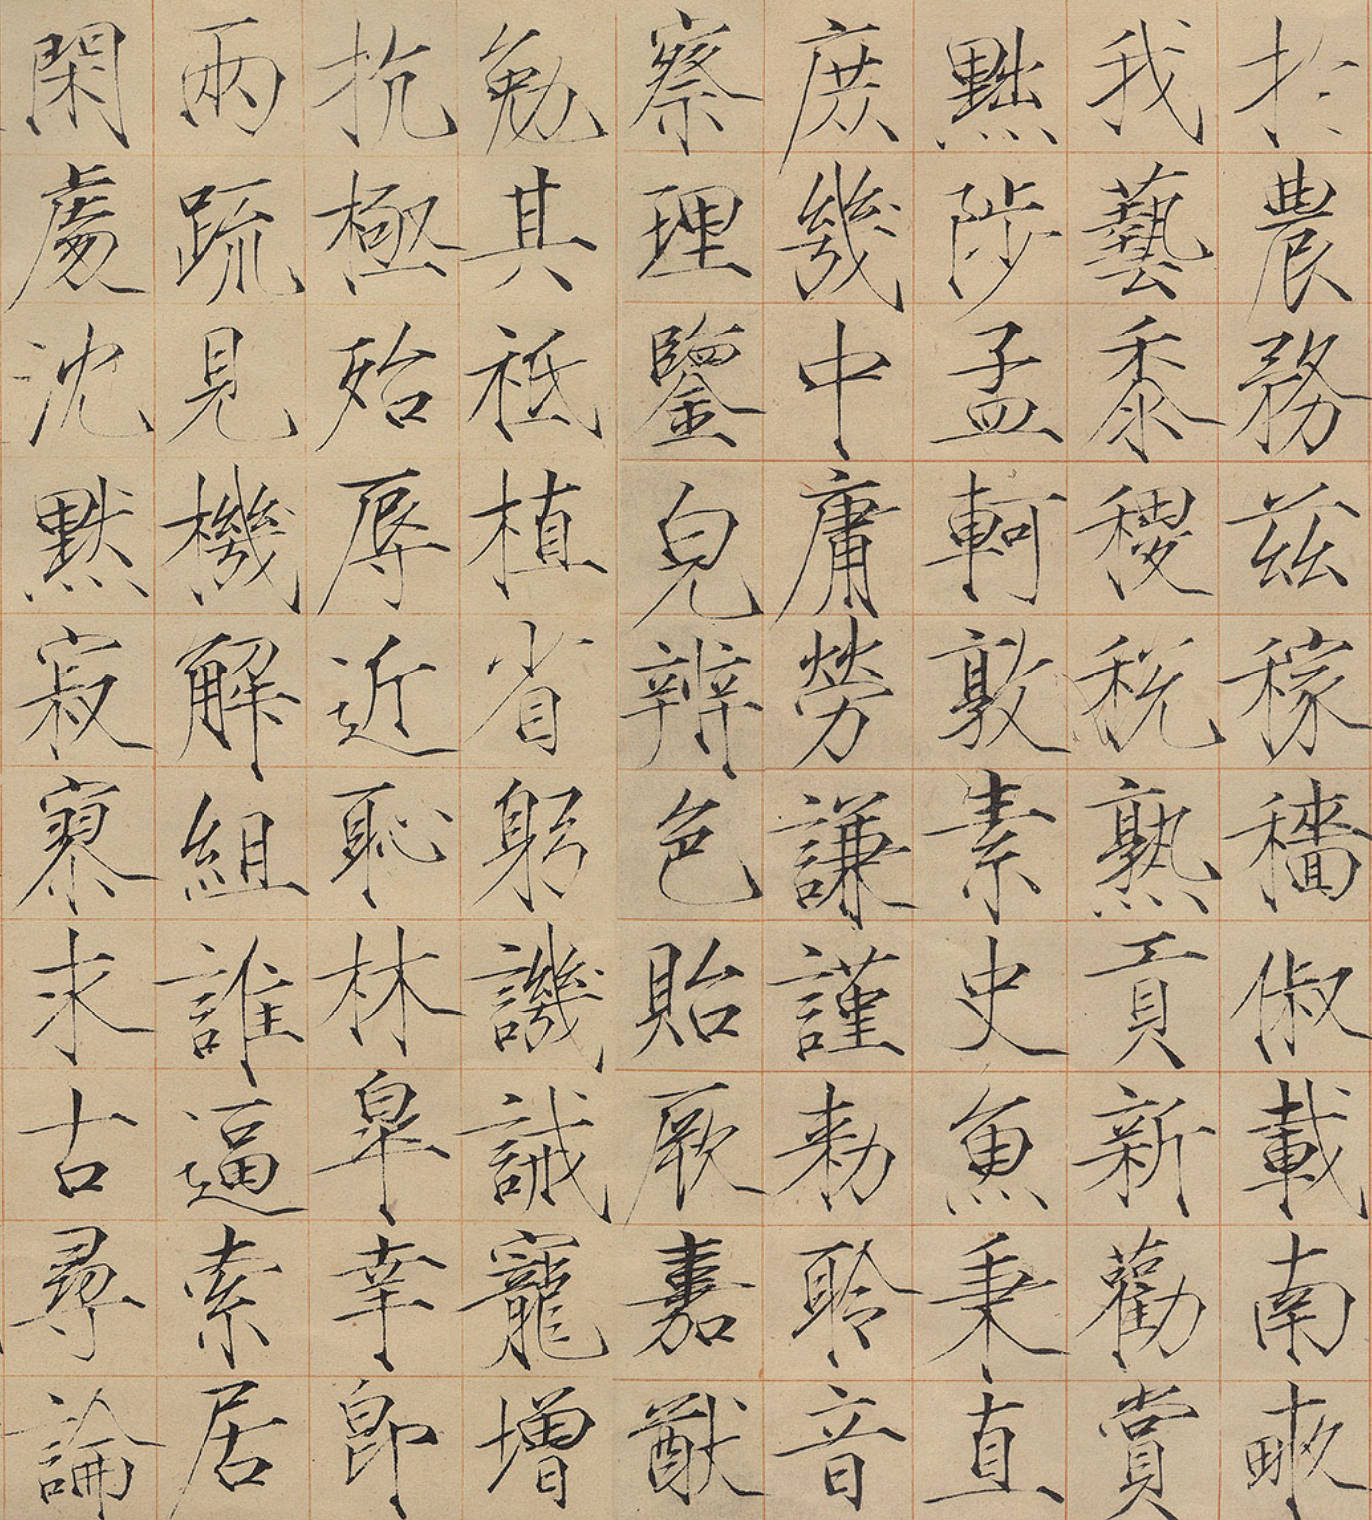 於農務茲稼穡俶載南畝
我藝黍稷稅熟貢新勸賞
黜陟孟軻敦素史魚秉直
庶幾中庸勞謙謹勅聆音
察理鑒皃辨色貽厥嘉猷
勉其祗植省躬譏誡寵增
抗極殆辱近恥林皋幸即
兩疏見機解組誰逼索居
閑處沈默寂寥求古尋論